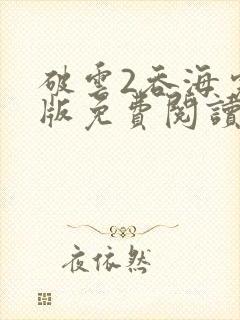 破雲2吞海
版免費閱讀
夜依然